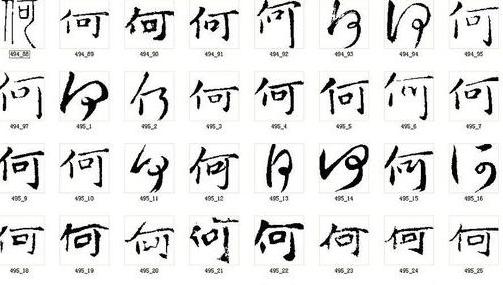 何 何 何 何 何 何 何 何
494_88 494_89 494_90 494_91 494_92 494_93 494_94 494_95
何 何 何 何 何 何 何 何
494_97 495_1 495_2 495_3 495_4 495_5 495_6 495_7
何 何 何 何 何 何 何 何
495_9 495_10 495_11 495_12 495_13 495_14 495_15 495_16
何 何 何 何 何 何 何 何
495_18 495_19 495_20 495_21 495_22 495_23 495_24 495_25